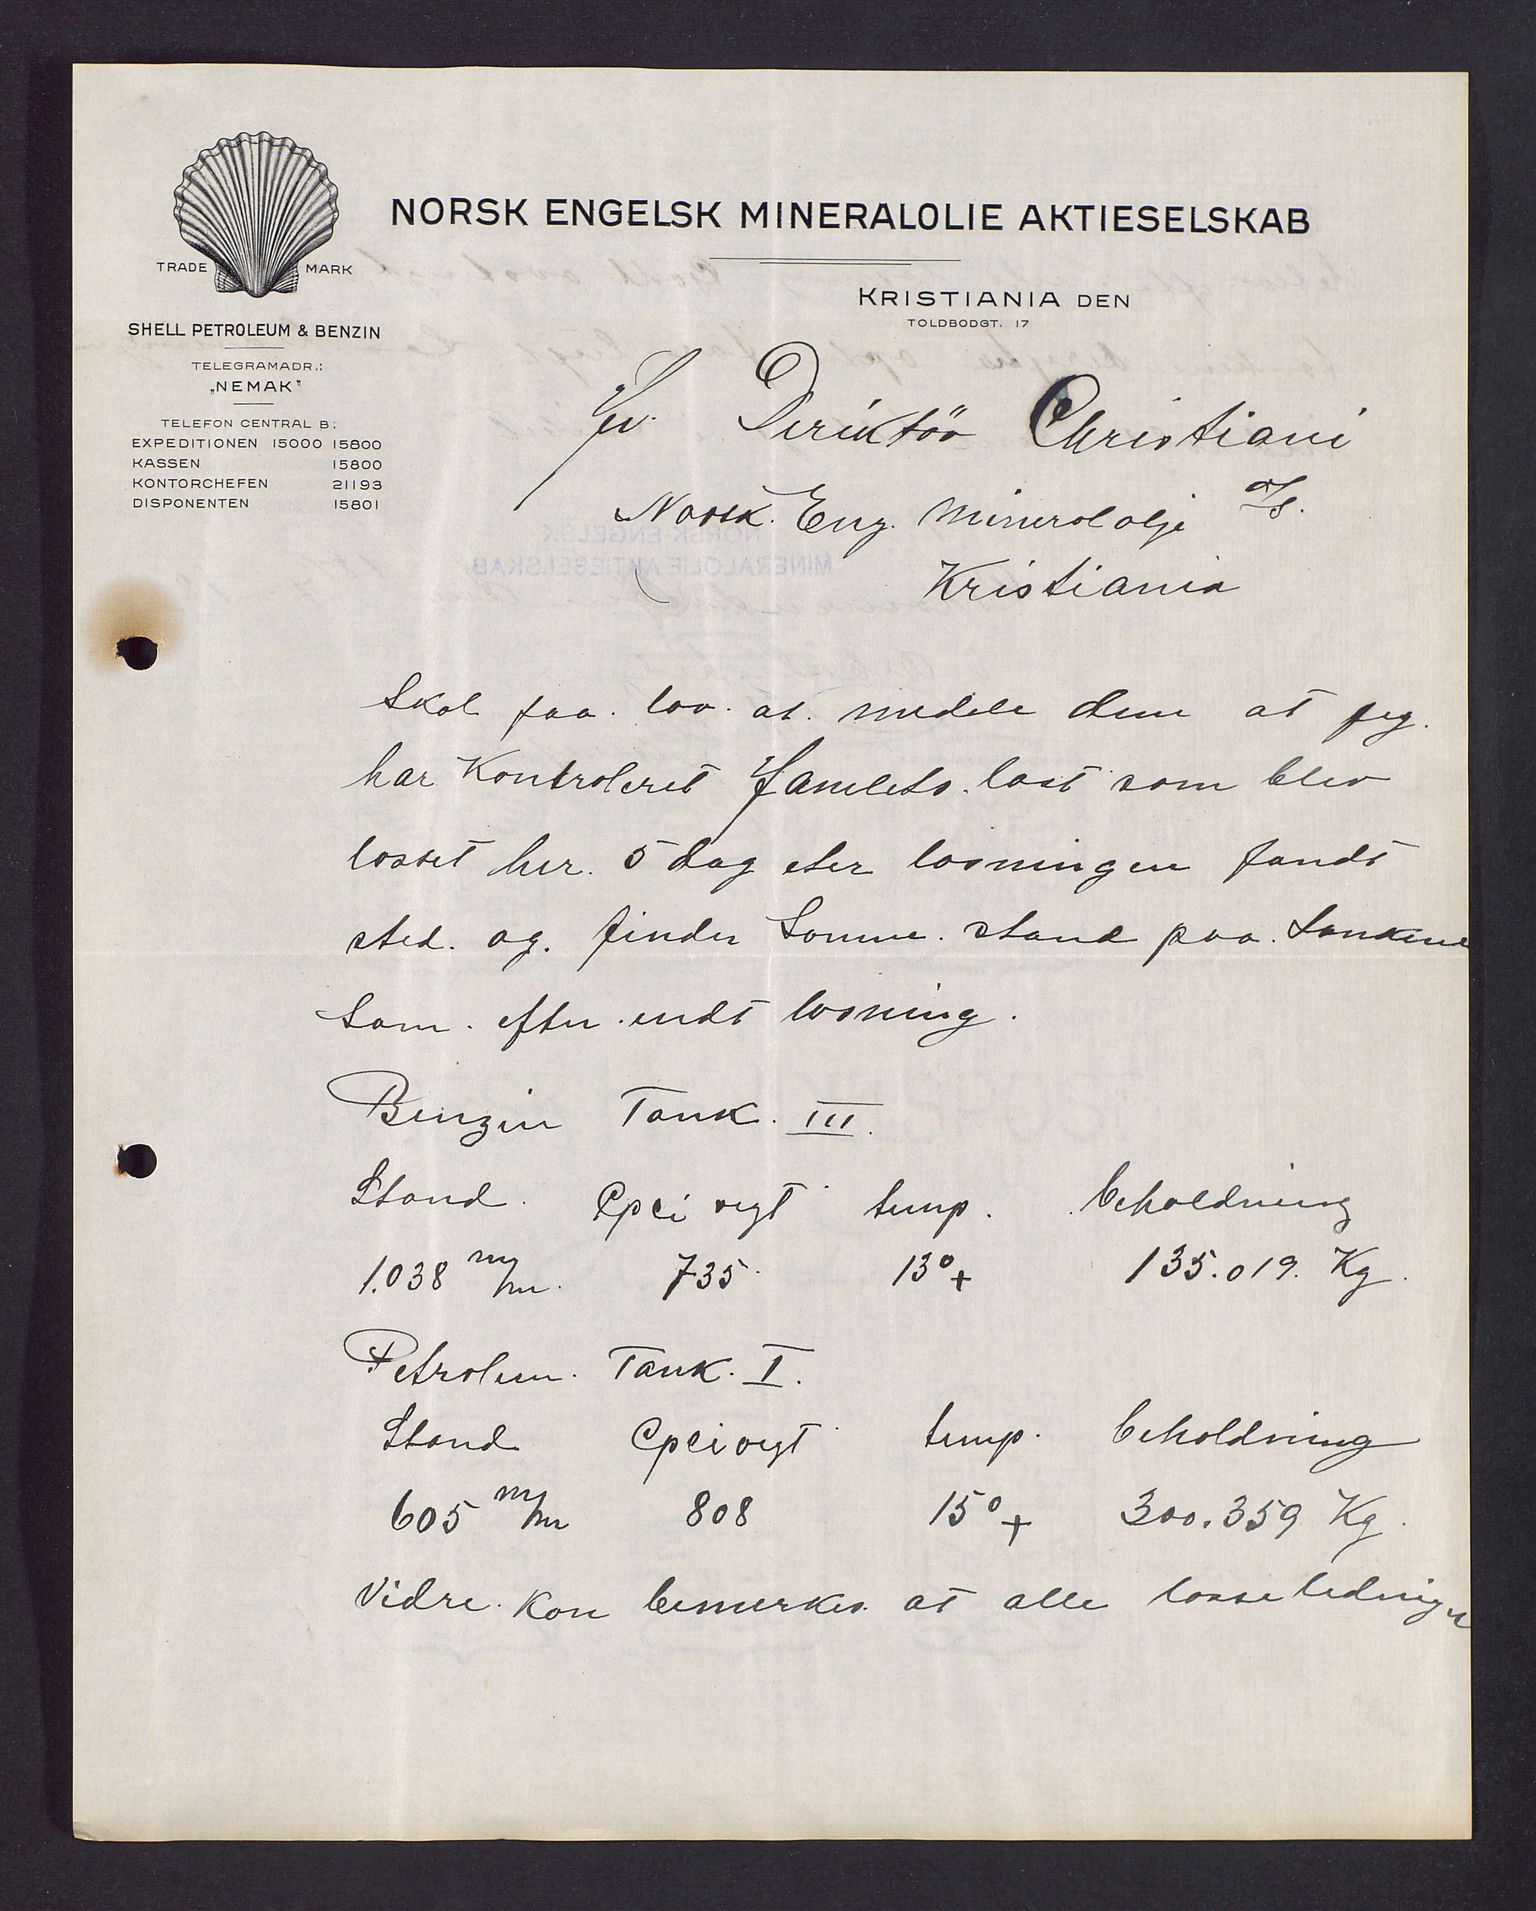 NORSK ENGELSK MINERALOLIE AKTIESELSKAB
TRADE MARK
SHELL PETROLEUM & BENZIN
TELEGRAMADR.:
„NEMAK"
TELEFON CENTRAL B:
EXPEDITIONEN 15000 15800
KASSEN 15800
KONTORCHEFEN 21193
DISPONENTEN 15801
KRISTIANIA DEN
TOLDBODGT. 17
Hr. Diriktör Christiani
Norsk. Eng. Mineralolje A/S.
Kristiania
Skal faa. lov. at. medele dem at jeg.
har Kontroleret Hamlets. last som blev
losset her. 5 dag eter losningen fandt
sted. og. finder Samme. stand paa. Tankene
Som. efter endt losning.
Benzin Tank. III.
Stand. Spci vegt temp. beholdning
1.038 m/m. 735 13°+ 135.019. Kg.
Petrolium. Tank. I.
Stand Spcivegt temp. beholdning
605 m/m 808 15°+ 300.359 Kg.
Vidre. kan bemerkes. at alle losseledninger
NORSK-ENGELSK
MINERALOLIE AKTIESELSKAB